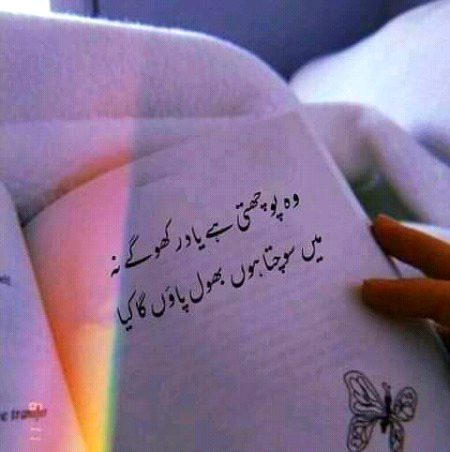 وہ پوچھتی ہے یاد رکھوگے نہ
میں سوچتا ہوں بھول پاؤں گا کیا